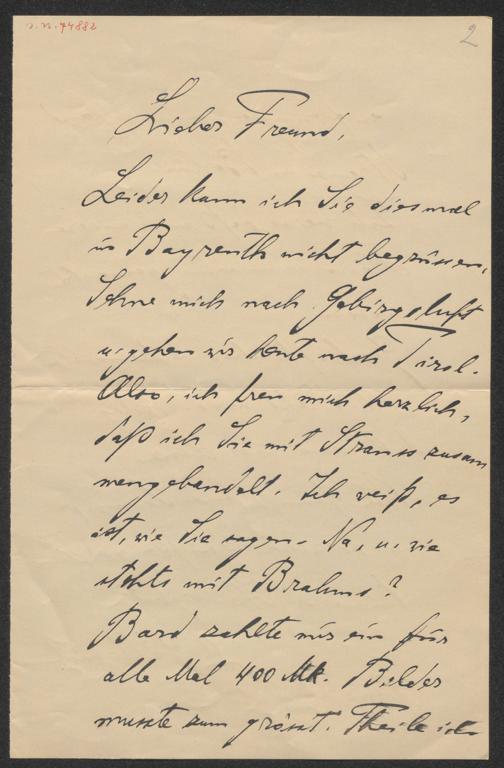 J. N. 74882
2
Lieber Freund,
Leider kann ich Sie diesmal
in Bayreuth nicht begrüssen,
Sehne mich nach Gebirgsluft
u. gehen wir heute nach Tirol.
Also, ich freu mich herzlich,
daß ich Sie mit Strauss zusam
mengebandelt. Ich weiß, es
ist, wie Sie sagen. Na, u. wie
stehts mit Brahms?
Bard zahlte mir ein für
alle Mal 400 Mk. Bilder
musste zum grösst. Theile ich